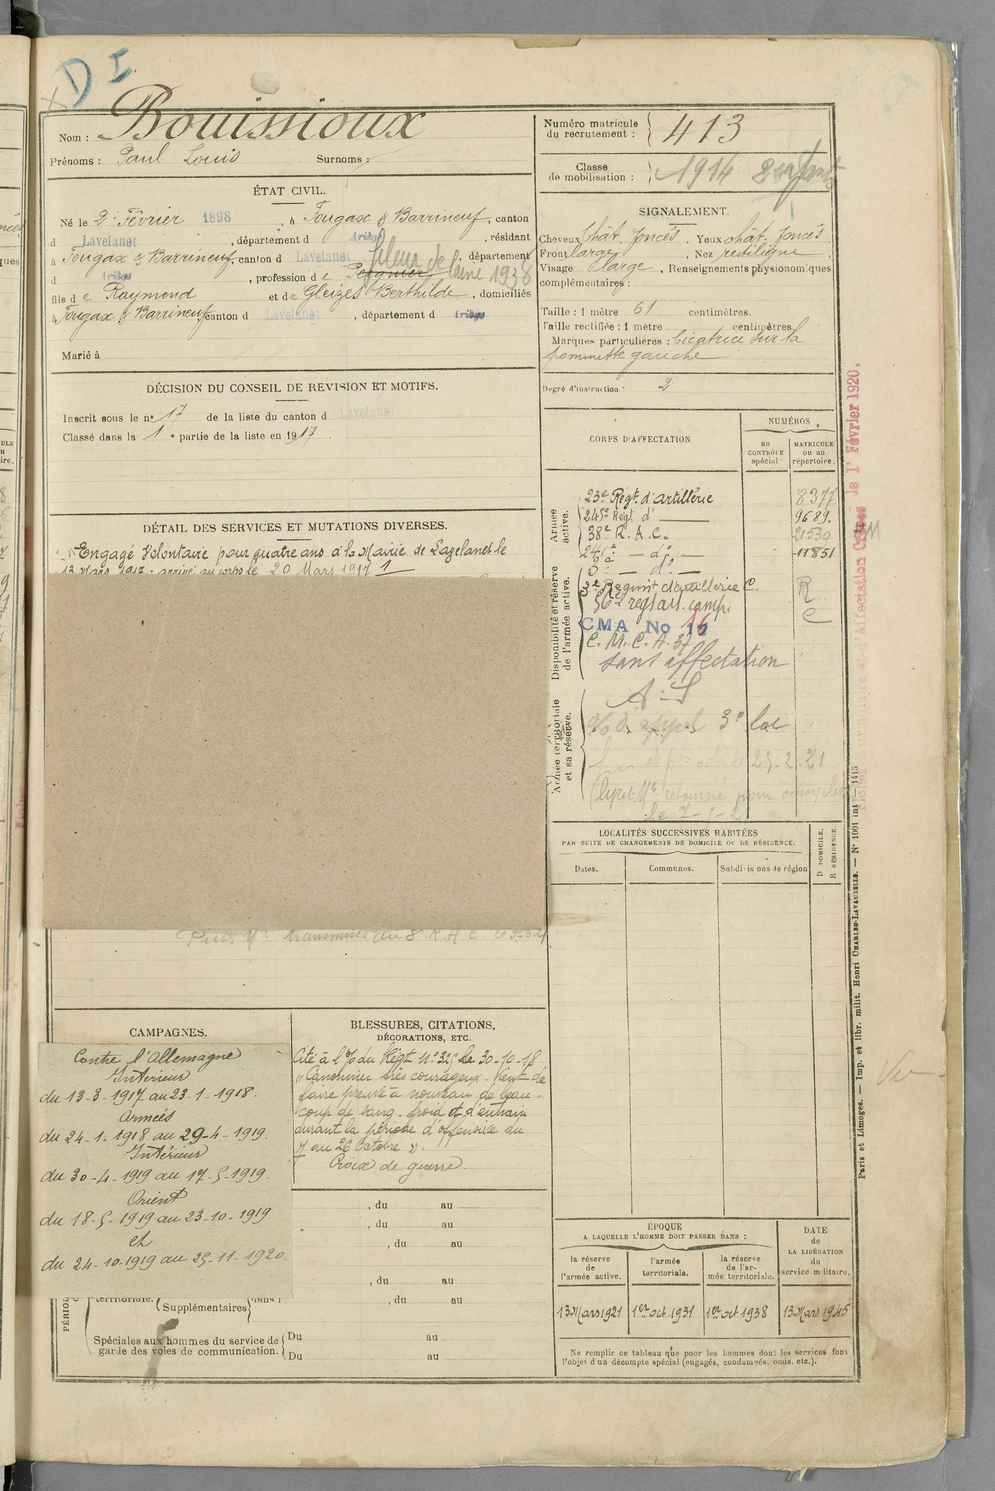 D I
Nom : Bouissioux
Prénoms : Paul Louis Surnoms :
ÉTAT CIVIL.
Né le 2 Février 1898, à Fougax & Barrineuf, canton
d Lavelanet, département d Ariège, résidant
à Fougax & Barrineuf, canton d Lavelanet, département
d Ariège, profession de Peignier fileur de laine 1938
fils de Raymond et de Gleizes Berthilde, domiciliés
à Fougax & Barrineuf canton d Lavelanet, département d Ariège
Marié à
DÉCISION DU CONSEIL DE REVISION ET MOTIFS.
Inscrit sous le n° 17 de la liste du canton d Lavelanet
Classé dans la 1e partie de la liste en 1917.
DÉTAIL DES SERVICES ET MUTATIONS DIVERSES.
Engagé Volontaire pour quatre ans à la Mairie de Lavelanet le
13 Mars 1917 : arrivé au corps le 20 Mars 1917 1
transmises au 8 R A C
CAMPAGNES.
Contre l'Allemagne
Intérieur
du 13-3-1917 au 23-1-1918.
Armées
du 24-1-1918 au 29-4-1919.
Intérieur
du 30-4-1919 au 17-5-1919.
Orient
du 18-5-1919 au 23-10-1919
et
du 24-10-1919 au 25-11-1920.
BLESSURES, CITATIONS,
DÉCORATIONS, ETC.
Cité à l'O/ du Régt n° 325 le 30-10-18
"Canonnier très courageux. Vient de
faire preuve à nouveau de beau-
coup de sang-froid et d'entrain
durant la période d'offensive du
7 au 26 Octobre".
Croix de guerre.
, du au
, du au
, du au
, du au
territoriale. Supplémentaires , du au
Spéciales aux hommes du service de
garde des voies de communication. Du au
Du au
Numéro matricule
du recrutement : 413
Classe
de mobilisation : 1914 2 enfants
SIGNALEMENT.
Cheveux chât. foncés. Yeux chât. foncés
Front large, Nez rectiligne
Visage large, Renseignements physionomiques
complémentaires :
Taille : 1 mètre 61 centimètres.
Taille rectifiée : 1 mètre centimètres.
Marques particulières : Cicatrice sur la
pommette gauche
Degré d'instruction : 2
CORPS D'AFFECTATION.
NUMÉROS
au CONTRÔLE spécial
MATRICULE ou au répertoire.
Armée active.
23e Régt. d'artillerie 8377
245e Régt. d° 9689.
38e R. A. C. 21539
24 d° 11851
Disponibilité et réserve de l'armée active.
5e d°
2e Régiment d'artillerie C. R
56e reg art. camp. C
CMA No 16
C. M. C. A. 37
sans affectation
Armée territoriale et sa réserve.
A. S
3e
25-2-21
retourné pour
LOCALITÉS SUCCESSIVES HABITÉES
PAR SUITE DE CHANGEMENTS DE DOMICILE OU DE RÉSIDENCE.
Dates. Communes. Subdivisions de région D DOMICILE. R RÉSIDENCE.
ÉPOQUE
A LAQUELLE L'HOMME DOIT PASSER DANS :
la réserve de l'armée active.
l'armée territoriale.
la réserve de l'armée territoriale.
DATE de LA LIBÉRATION du service militaire.
13 Mars 1921 1er oct 1931 1er oct 1938 13 Mars 1945
Ne remplir ce tableau que pour les hommes dont les services font
l'objet d'un décompte spécial (engagés, condamnés, omis, etc.).
Paris et Limoges. — Imp. et libr. milit. Henri CHARLES-LAVAUZELLE. — N° 1001 int — 1415
d'Affectation le 1er Février 1920.
Vu